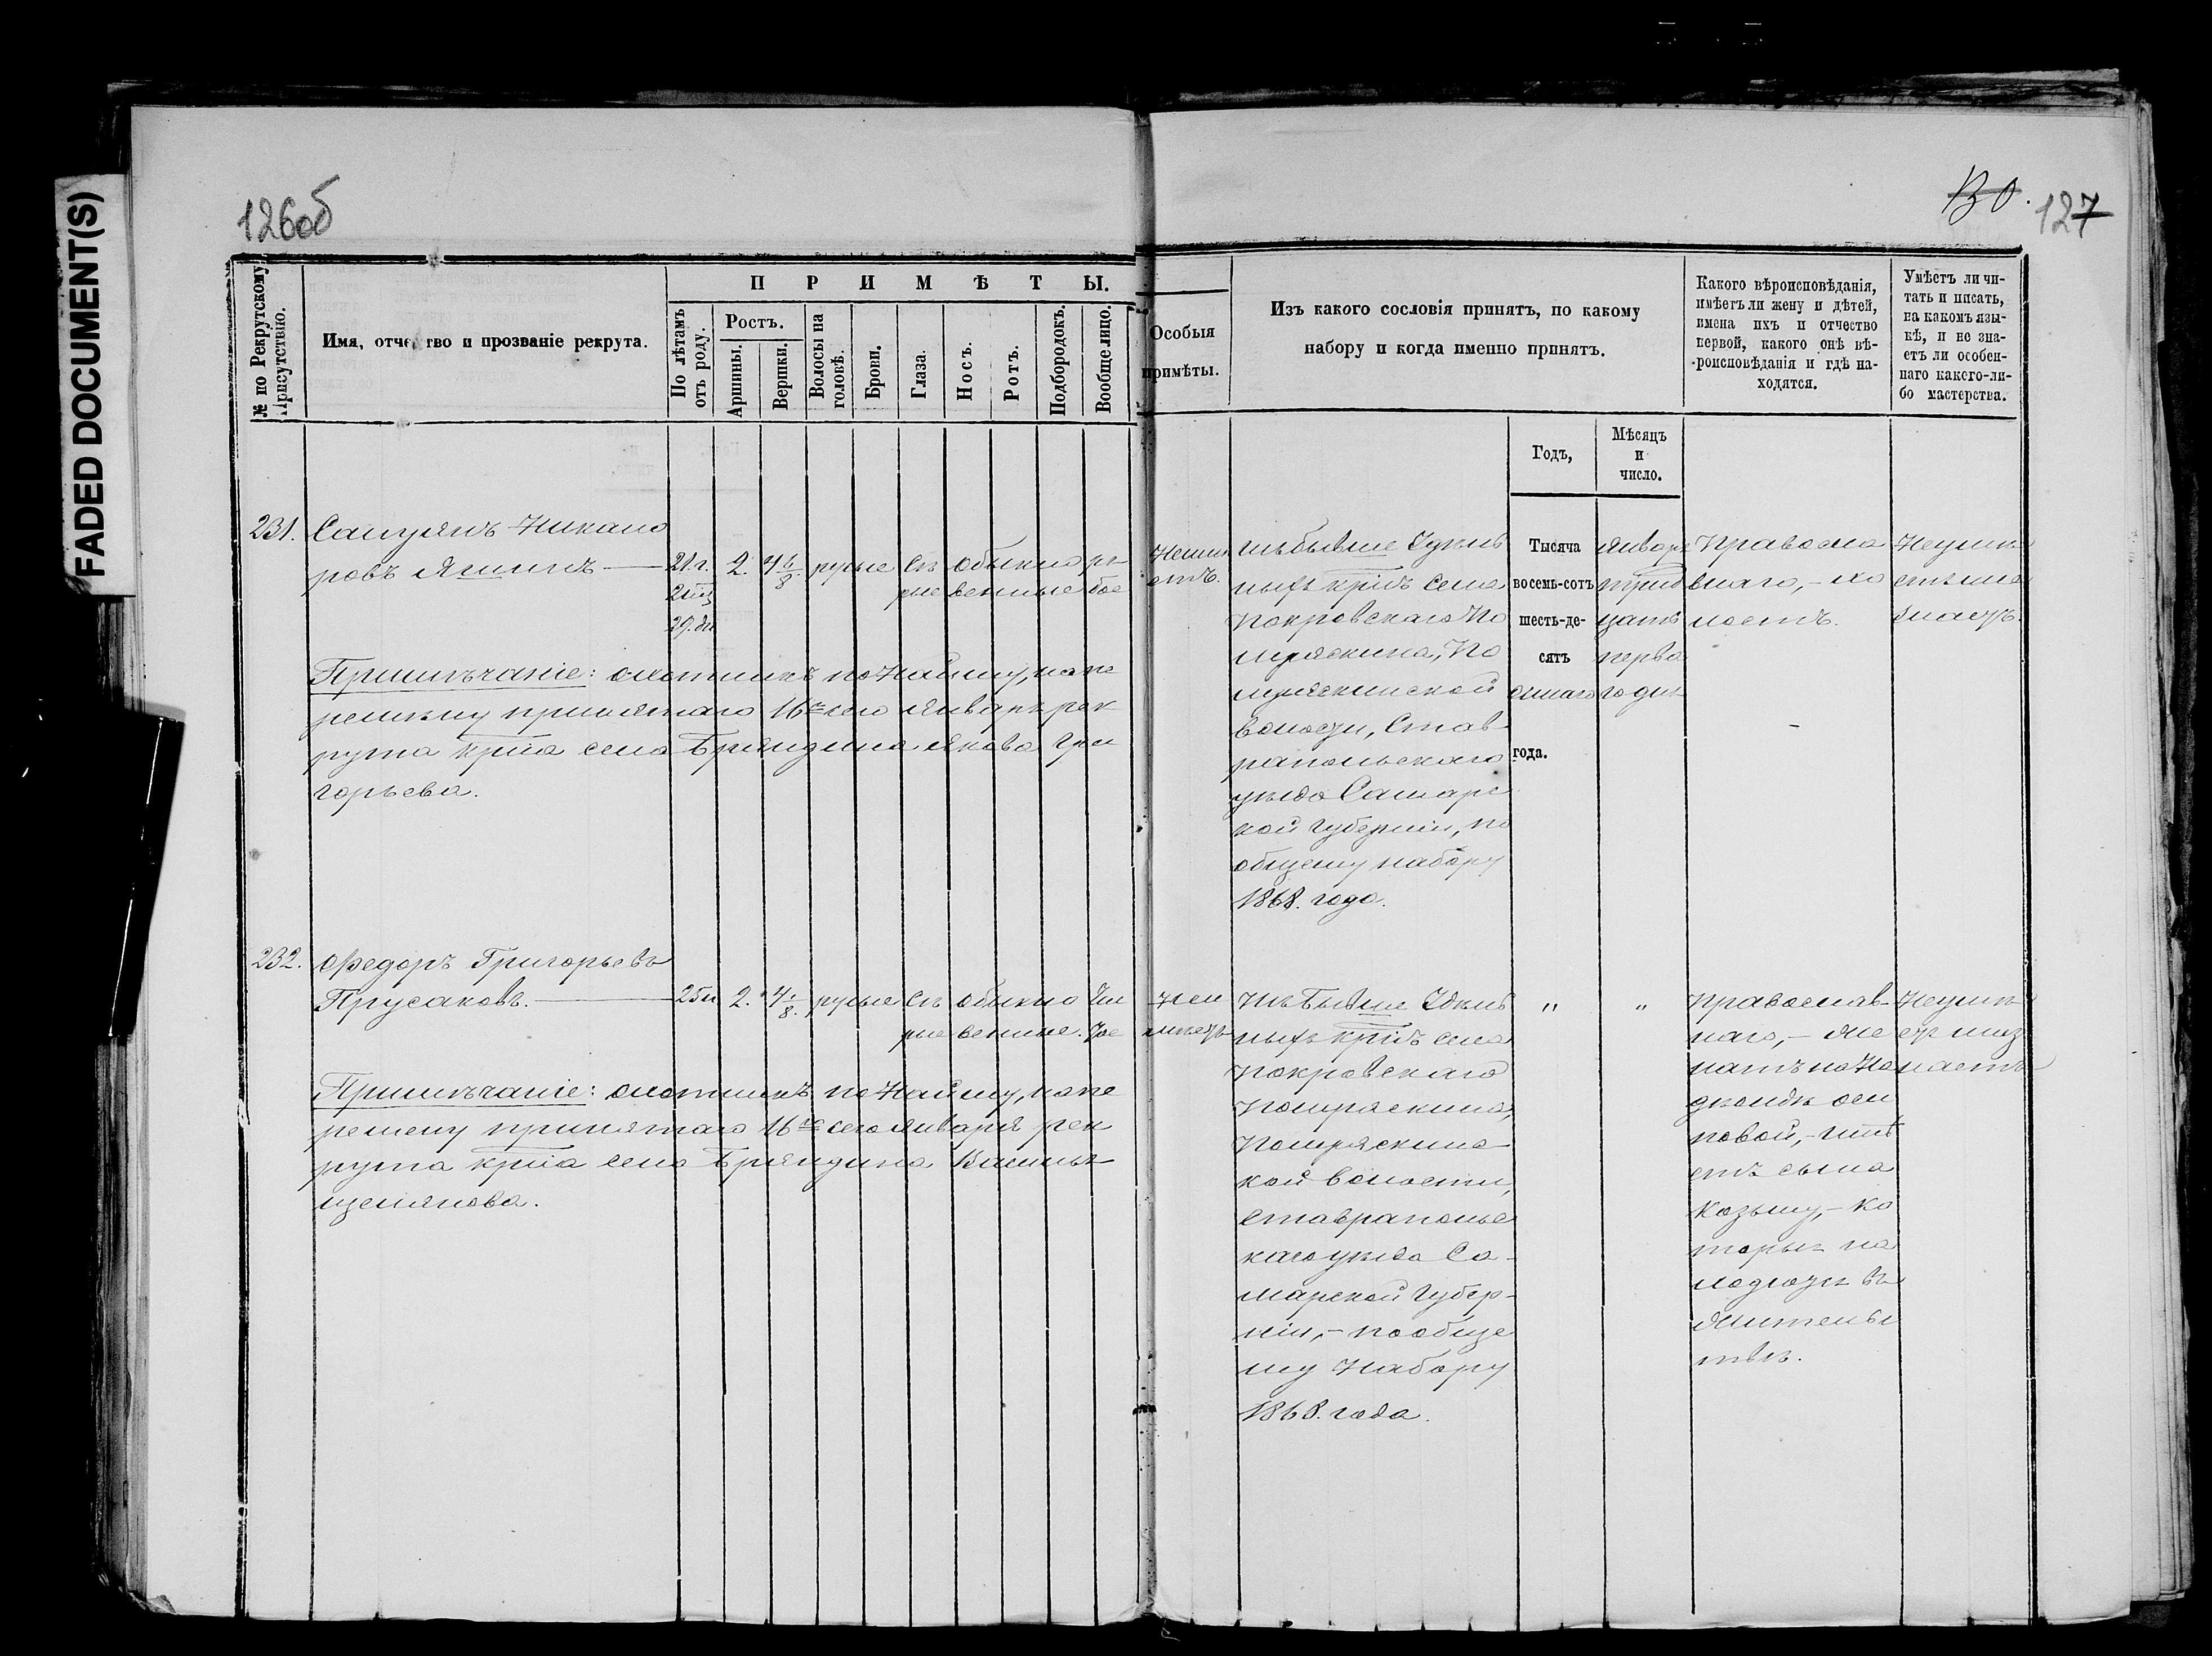 FADED DOCUMENT(S)
126об
130.
127
№ по Рекрутскому Присутствію.
Имя, отчество и прозваніе рекрута.
ПРИМѢТЫ.
По лѣтамъ отъ роду.
Ростъ.
Аршины.
Вершки.
Волосы на головѣ.
Брови.
Глаза.
Носъ.
Ротъ.
Подбородокъ.
Вообще лицо.
Особыя
примѣты.
Изъ какого сословія принятъ, по какому
набору и когда именно принятъ.
Какого вѣроисповѣданія,
имѣетъ ли жену и дѣтей,
имена ихъ и отчество
первой, какого онѣ вѣ-
роисповѣданія и гдѣ на-
ходятся.
Умѣетъ ли чи-
тать и писать,
на какомъ язы-
кѣ, и не зна-
етъ ли особен-
наго какого-ли-
бо мастерства.
Годъ,
Мѣсяцъ
и
число.
231.
Никано
ровъ Яшинъ
21 г.
29. дн
2.
4 6/8
русые
сѣ
рые
обыкно
венные
ря
бое
неим
етъ.
изъ бывше Удѣль
ныхъ кр͞нъ села
Покровскаго По
мряскина, По
мряскинской
волости, Став-
ропольскаго
уѣзда Самарс
кой Губерніи, по
общему набору
1868. года.
Тысяча
восемь-сотъ
шесть-де-
сятъ
осьмаго
года.
Января
трид
цать
перва
го дня
Правосла
внаго, - хо
лостъ.
Неумѣ
етъ и не
знаетъ.
Примѣчаніе: охотникъ по найму, на пе
ремѣну принятаго 16го сего Января рек
рута кр͞на села Бряндина Якова Гри
горьева.
232.
Ѳедоръ Григорьевъ
Прусаковъ.
25 л
2.
4 1/8.
русые
сѣ
рые
обыкно
венные.
чис
тое
неи
мѣетъ
Изъ Бывше Удѣль
ныхъ кр͞нъ села
Покровскаго
Помряскина,
Помряскинс
кой волости,
Ставропольс
каго уѣзда Са-
марской Губер-
ніи, - по обще
му Набору
1868. года.
"
"
Православ-
наго, - же
натъ на На
деждѣ Оси
повой, - имѣ
етъ сына
Козьму, - ко
торые на
ходятся въ
жительс
твѣ.
Неумѣ
Примѣчаніе: охотникъ по Найму, на пе
ремену принятаго 16го сего Января рек
рута кр͞на села Бряндина